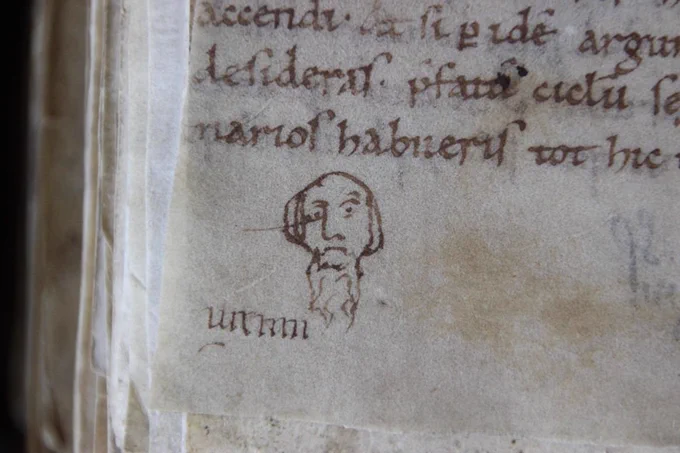 accendi.
si ꝑ idē argum
desideras. p̄fatū ciclū se
narios habueris tot hic